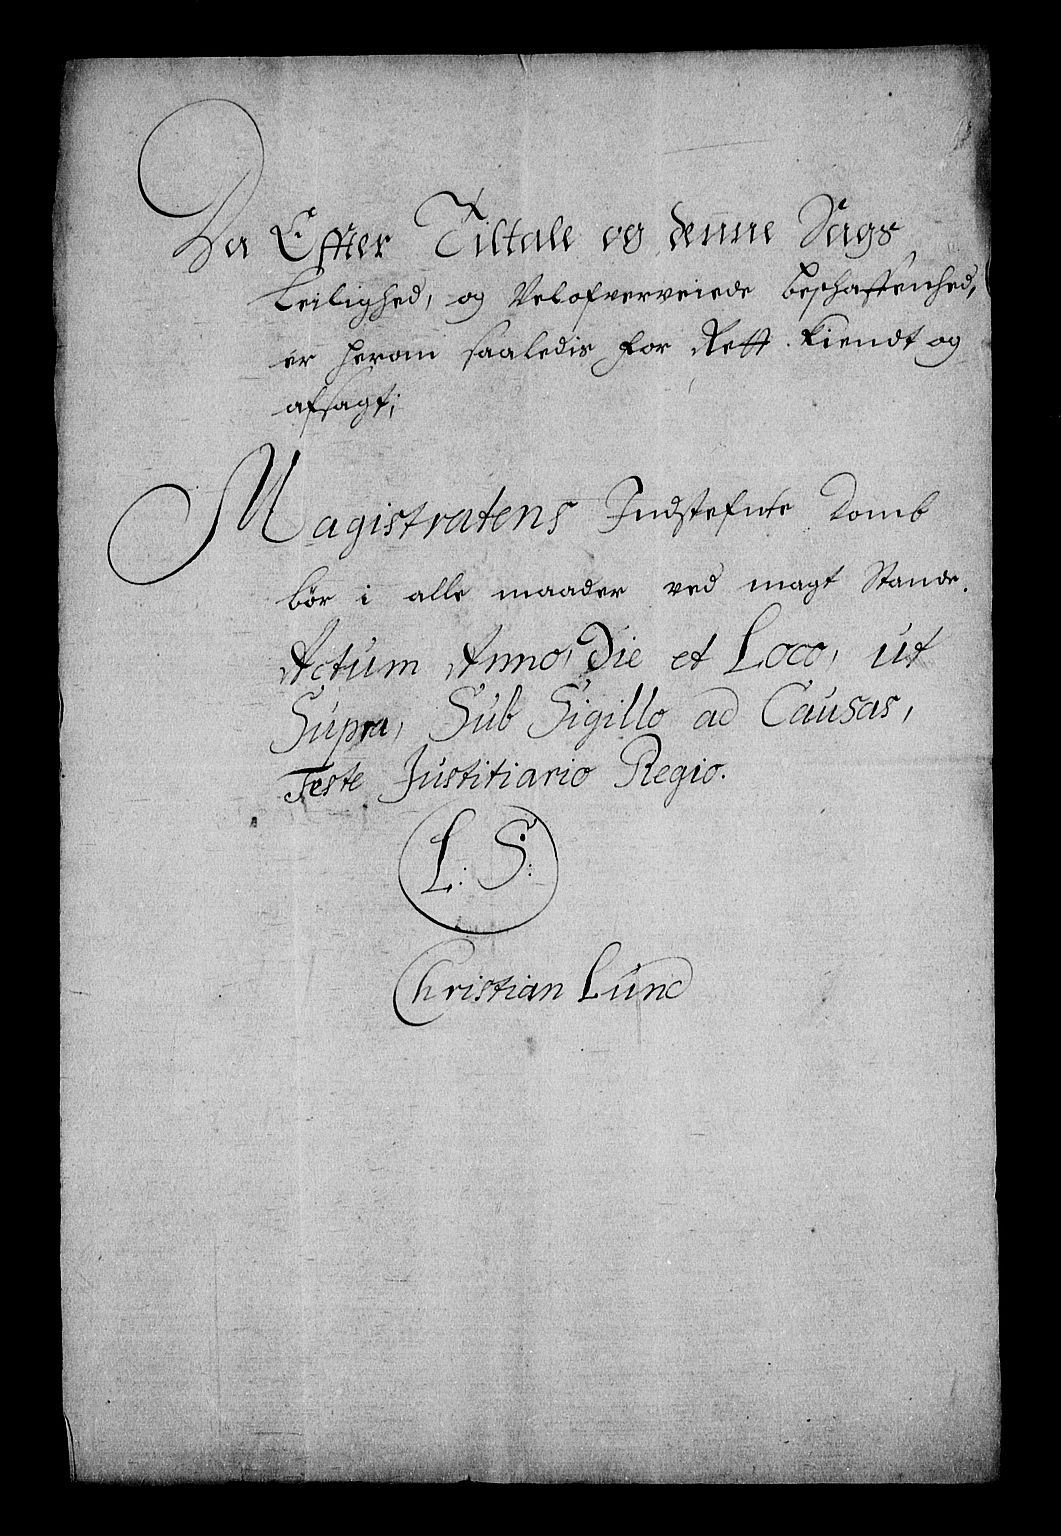 Da Effter Tiltale og denne Sags
Leilighed, og Velofverveiede beschaffenhed,
er herom saaledis for Rett kiendt og
afsagt;
Magistratens Indstefnte Domb
bör i alle maader ved magt Stande.
Actum Anno, Die et Loco, ut
Supra, Sub Sigillo ad Causas,
Teste Justitiario Regio.
L: S:
Christian Lund